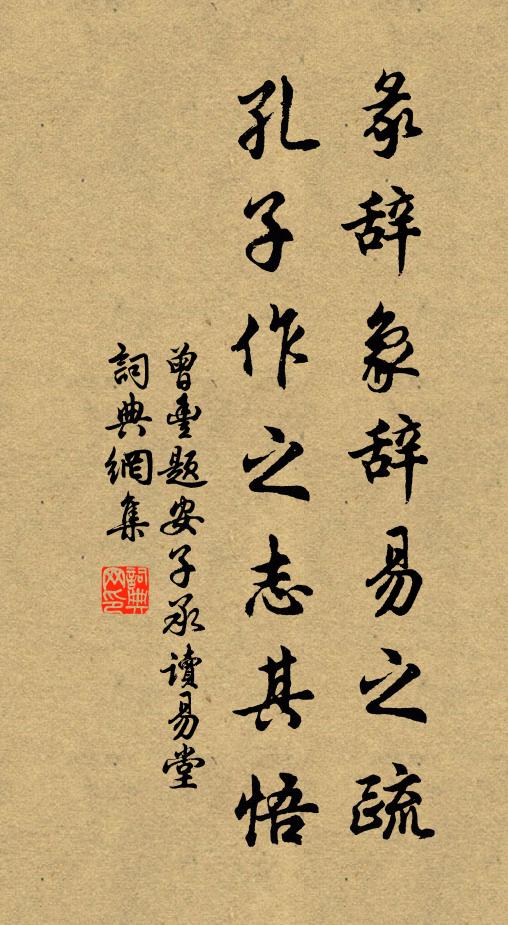 彖辞象辞易之疏
孔子作之志其悟
曾豐题安子承讀易堂
詞典網集
詞典
网印